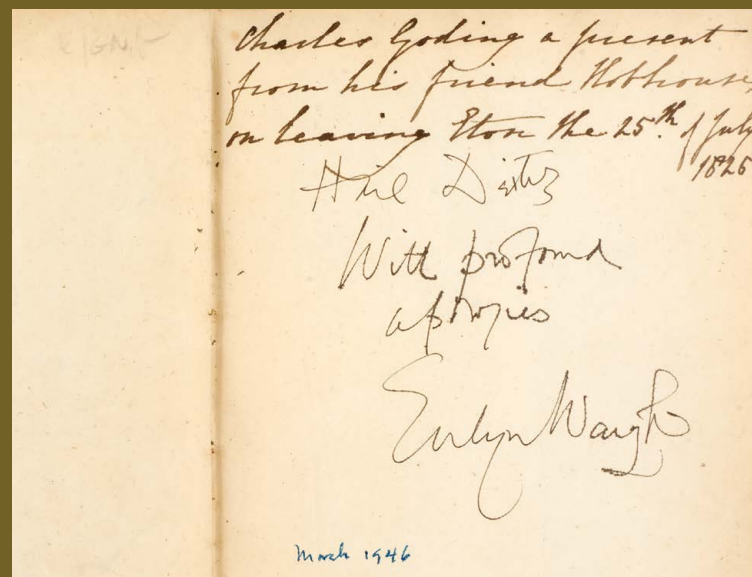 Charles Goding a present
from his friend Hobhouse,
on leaving Eton the 25.th of July
1826
With profound
apologies
Evelyn Waugh
March 1946